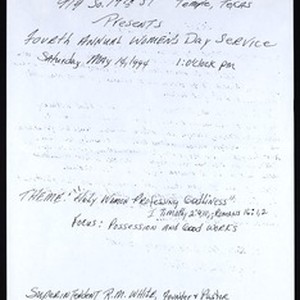 So. 19th St Temple, Texas
Presents
Fourth Annual Women's Day Service
Saturday, May 14, 1994 1:o'clock pm
THEME: "Holy Women Professing Godliness"
I Timothy 2:9,10, Romans 16:1,2
Focus: Possession and Good Works
Superintendent R.M. White, Founder & Pastor